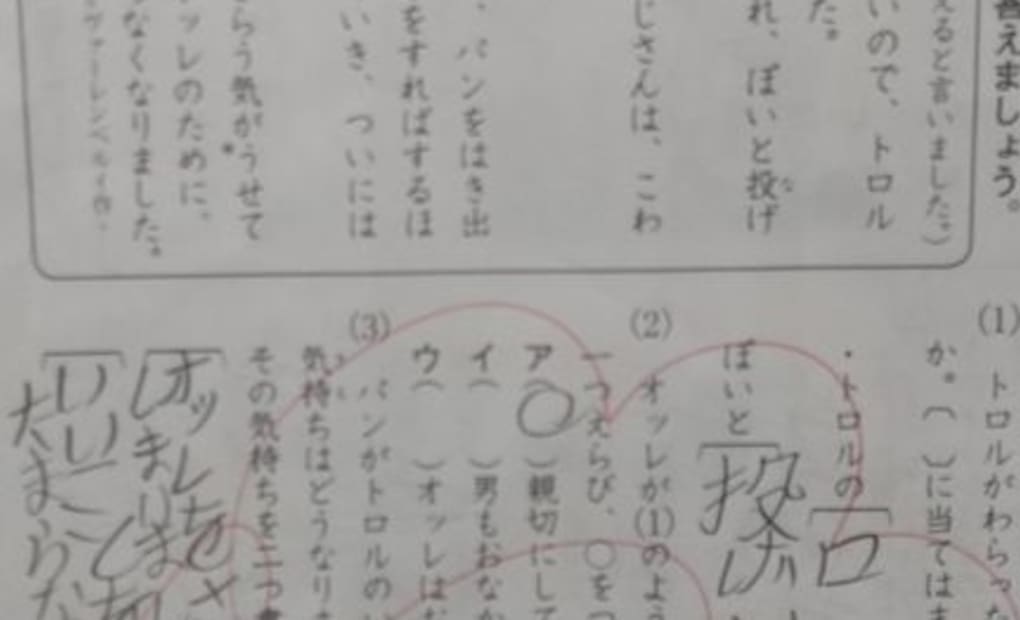 答えましょう。
えると言いました。)
いので、トロル
た。
れ、ぽいと投げ
な
じさんは、こわ
、パンをはき出
をすればするほ
いき、ついには
らう気がうせて
ッレのために、
なくなりました。
(1) トロルがわらった
か。( )に当てはま
・トロルの
ロ
ぽいと
投げ
(2) オッレが(1)のよう
一つえらび、○をつ
ア(○)親切にして
イ( )男もおなか
ウ( )オッレはお
(3) パンがトロルのい
気持ちはどうなりま
その気持ちを二つ書
オッレちゃ
しまりま